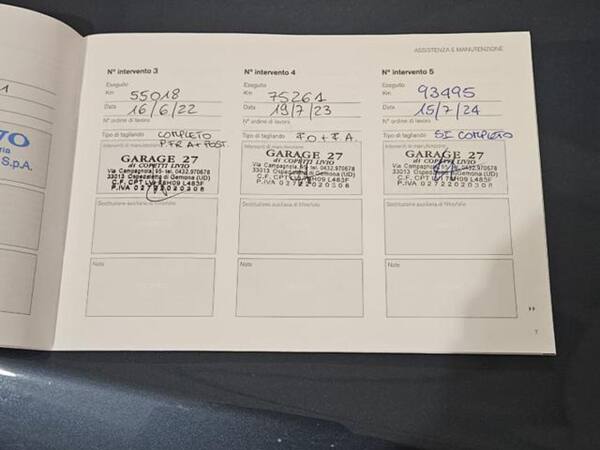 ASSISTENZA E MANUTENZIONE
1
S.p.A.
N° intervento 3
Eseguito
Km 55018
Data 16/6/22
N° ordine di lavoro
Tipo di tagliando COMPLETO
PFR A+POST.
Interventi di manutenzione
GARAGE 27
di COPETTI LIVIO
Via Campagnola, 95- tel. 0432.970578
33013 Ospedaletto di Gemona (UD)
P.IVA 02722020308
Sostituzione ausiliaria di filtro/olio
Note
N° intervento 4
Eseguito
Km 75261
Data 19/7/23
N° ordine di lavoro
Tipo di tagliando TO+TA.
Interventi di manutenzione
GARAGE 27
di COPETTI LIVIO
Via Campagnola, 95- tel. 0432.970578
33013 Ospedaletto di Gemona (UD)
P.IVA 02722020308
Sostituzione ausiliaria di filtro/olio
Note
N° intervento 5
Eseguito
Km 93495
Data 15/7/24
N° ordine di lavoro
Tipo di tagliando SI COMPLETO
Interventi di manutenzione
GARAGE 27
di COPETTI LIVIO
Via Campagnola, 95- tel. 0432.970578
33013 Ospedaletto di Gemona (UD)
P.IVA 02722020308
Sostituzione ausiliaria di filtro/olio
Note
7